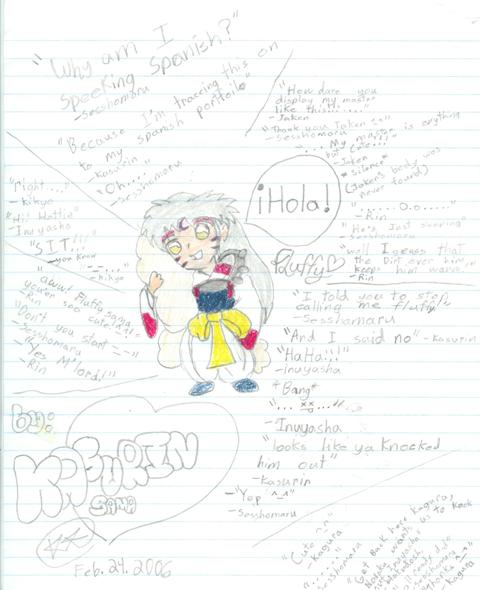 "Why am I
speeking spanish?"
-Sesshomaru
"Because I'm traccing this on
to my spanish portfoile"
-Kasurin
"Oh...."
-Sesshomaru
"How dare you
display my master
like this!!...."
-Jaken
"Thank you Jaken
-Sesshomaru
"... My master is anything
but cute...!!!"
-Jaken
*Silence*
(Jaken's body was
never found)
"......O.o....."
-Rin
"He's Just sleeping"
"well I guess that
the Dirt over him
keeps him warm"
-Rin
¡Hola!
Fluffy
"right...."
-Kikyo
"Hi! Hottie"
-Inuyasha
"SIT!!!"
-you know
"-_-..."
-Kikyo
"aww! Fluffy sama
you're soo cute!
-Rin
"Don't you start -_-"
-Sesshomaru
"Yes M'lord!"
-Rin
"I told you to stop
calling me fluffy!"
-Sesshomaru
"And I said no" -Kasurin
"HaHa!!!"
-Inuyasha
*Bang*
-Inuyasha
"looks like ya knocked
him out"
-Kasurin
-"Yep ^-^"
-Sesshomaru
by:
KASURIN
SAMA
Feb. 24. 2006
"Cute ^.^"
-Kagura
".....
-Sesshomaru
"Get Back here Kagura,
wants us to kack
Inuyasha"
-Sesshomaru
-Kagura